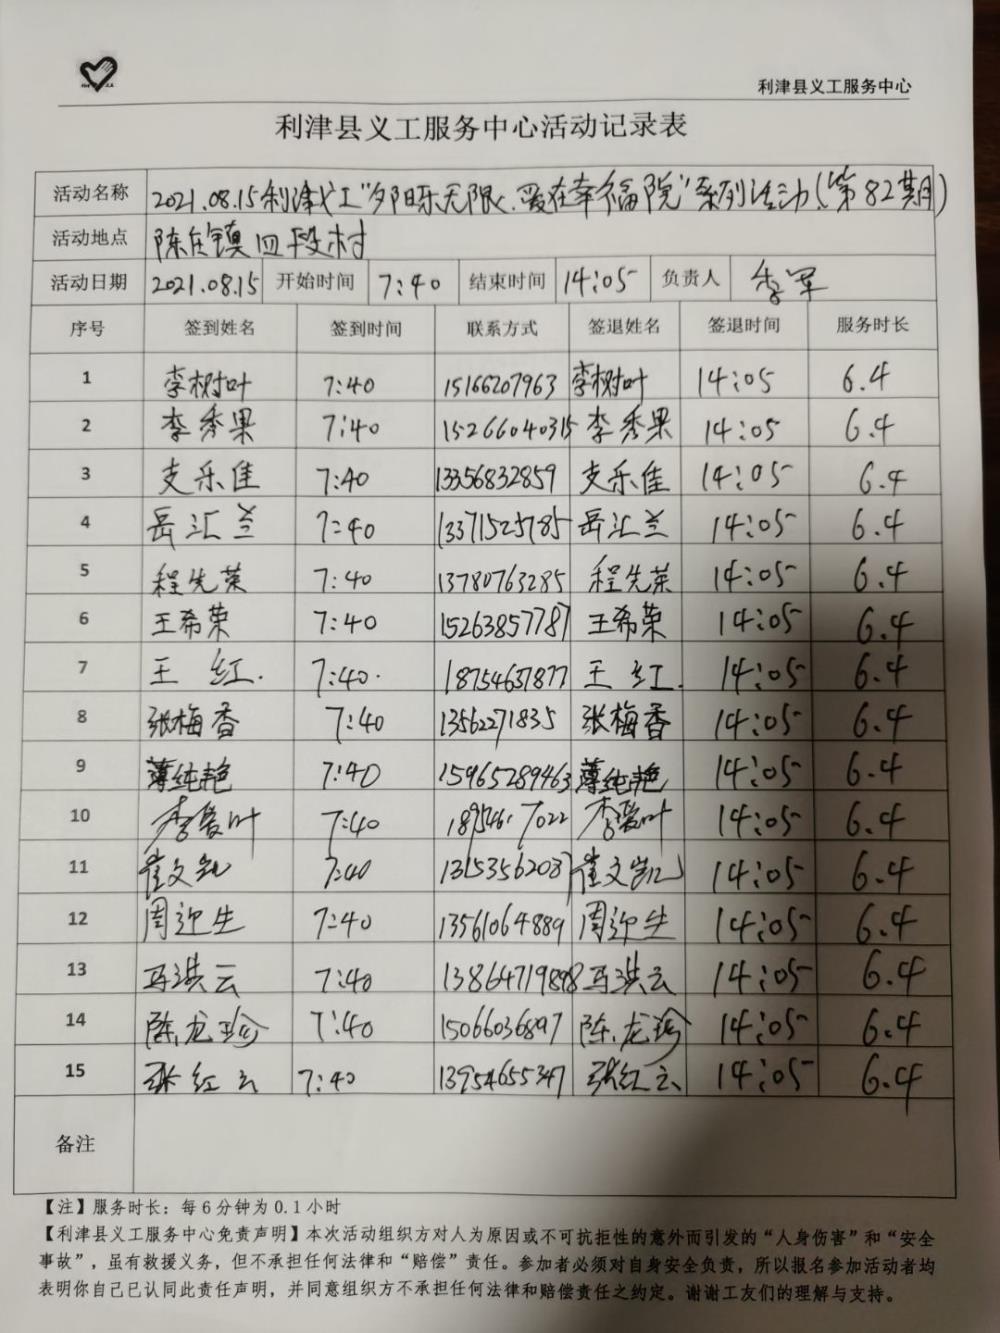 利津县义工服务中心
利津县义工服务中心活动记录表
活动名称 2021.08.15利津义工“夕阳乐无限、爱在幸福院”系列活动(第82期)
活动地点 陈庄镇四段村
活动日期 2021.08.15 开始时间 7:40 结束时间 14:05 负责人 李军
序号 签到姓名 签到时间 联系方式 签退姓名 签退时间 服务时长
1 李树叶 7:40 15166207963 李树叶 14:05 6.4
2 李秀果 7:40 15266040315 李秀果 14:05 6.4
3 支乐佳 7:40 13356832859 支乐佳 14:05 6.4
4 岳汇兰 7:40 13371525785 岳汇兰 14:05 6.4
5 程先荣 7:40 13780763285 程先荣 14:05 6.4
6 王希荣 7:40 15263857787 王希荣 14:05 6.4
7 王红. 7:40. 18754637877 王红. 14:05 6.4
8 张梅香 7:40 13562271835 张梅香 14:05 6.4
9 薄纯艳 7:40 15965289463 薄纯艳 14:05 6.4
10 李爱叶 7:40 18954617022 李爱叶 14:05 6.4
11 崔文凯 7:40 13153562037 崔文凯 14:05 6.4
12 周迎生 7:40 13561064889 周迎生 14:05 6.4
13 马洪云 7:40 13864719898 马洪云 14:05 6.4
14 陈龙珍 7:40 15066036897 陈龙珍 14:05 6.4
15 张红云 7:40 13954655347 张红云 14:05 6.4
备注
【注】服务时长：每6分钟为0.1小时
【利津县义工服务中心免责声明】本次活动组织方对人为原因或不可抗拒性的意外而引发的“人身伤害”和“安全
事故”，虽有救援义务，但不承担任何法律和“赔偿”责任。参加者必须对自身安全负责，所以报名参加活动者均
表明你自己已认同此责任声明，并同意组织方不承担任何法律和赔偿责任之约定。谢谢工友们的理解与支持。